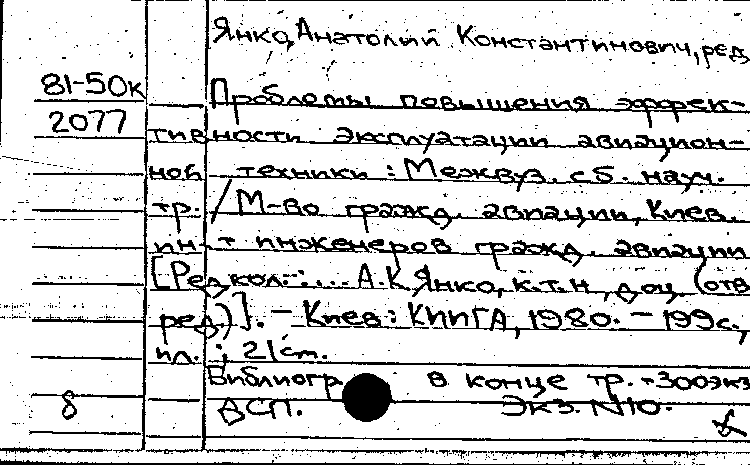 Янко, Анатолий Константинович, ред
81-50к
Проблемы повышения эффек-
2077
тивности эксплуатации авиацион-
ной техники : Межвуз. сб. науч.
тр. / М-во гражд. авиации, Киев.
ин-т инженеров гражд. авиации
[Редкол.: ... А.К. Янко, к.т.н., доц. (отв
ред.)]. - Киев : КИИГА, 1980. - 199с.,
ил. ; 21cm.
Библиогр в конце тр. - 300экз
8 ДСП. Экз. N10.